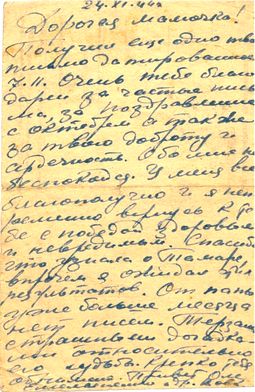 24.XI.44г
Дорогая Мамочка!
Получил еще одно твое
письмо датированное
7.11. Очень тебе благо
дарен за частые пись
ма, за поздравление
с октябрем а также
за твою доброту и
сердечность. Обо мне не
беспокойся. У меня все
благополучно и я неп
ременно вернусь к те
бе с победой здоровым
и невредимым. Спасибо
что узнала о Тамаре,
впрочем я ожидал
результатов. От папы
уже больше месяца
нет писем. Терзаюсь
страшными догадка
ми относительно
его судьбы. Крепко тебя
Привет